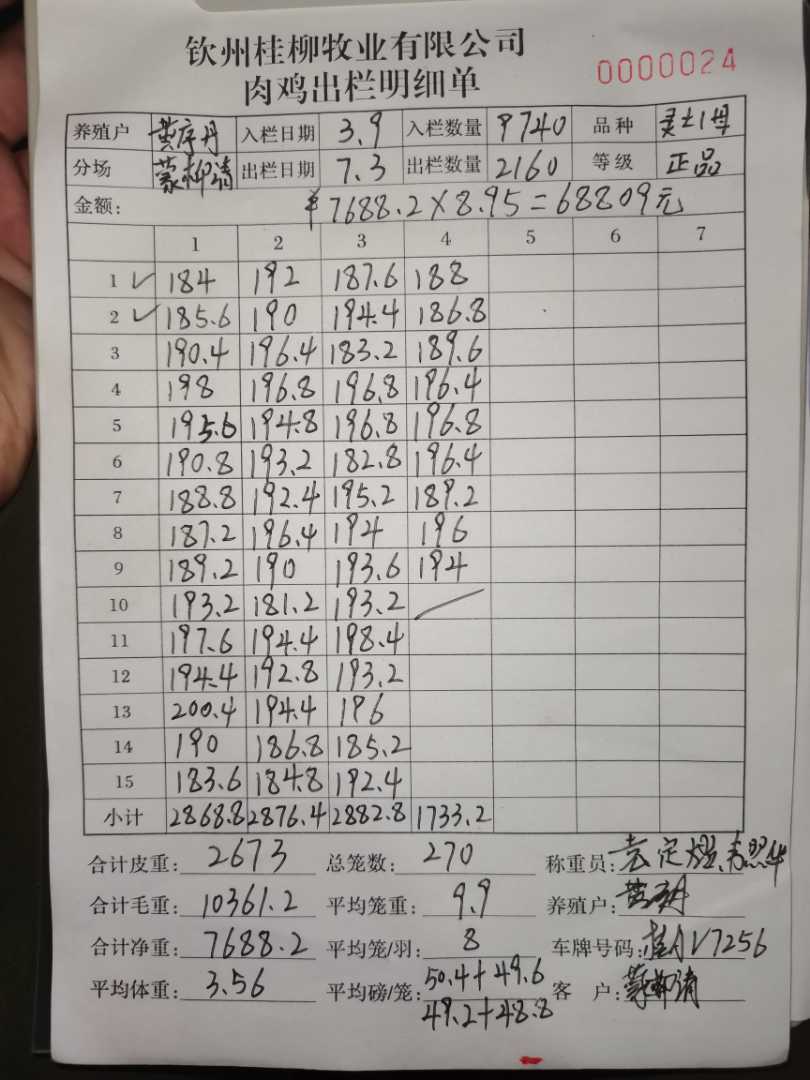 钦州桂柳牧业有限公司
肉鸡出栏明细单
0000024
养殖户 黄序丹 入栏日期 3.9 入栏数量 9740 品种 灵土1母
分场 蒙柳清 出栏日期 7.3 出栏数量 2160 等级 正品
金额: ¥7688.2×8.95=68809元
1 2 3 4 5 6 7
1 ✓ 184 192 187.6 188
2 ✓ 185.6 190 194.4 186.8
3 190.4 196.4 183.2 189.6
4 198 196.8 196.8 196.4
5 195.6 194.8 196.8 196.8
6 190.8 193.2 182.8 196.4
7 188.8 192.4 195.2 189.2
8 187.2 196.4 194 196
9 189.2 190 193.6 194
10 193.2 181.2 193.2
11 197.6 194.4 198.4
12 194.4 192.8 193.2
13 200.4 194.4 196
14 190 186.8 185.2
15 183.6 184.8 192.4
小计 2868.8 2876.4 2882.8 1733.2
合计皮重: 2673 总笼数: 270 称重员:
合计毛重: 10361.2 平均笼重: 9.9 养殖户: 黄序丹
合计净重: 7688.2 平均笼/羽: 8 车牌号码: V7256
平均体重: 3.56 平均磅/笼: 50.4+49.6 客 户: 蒙柳清
49.2+48.8